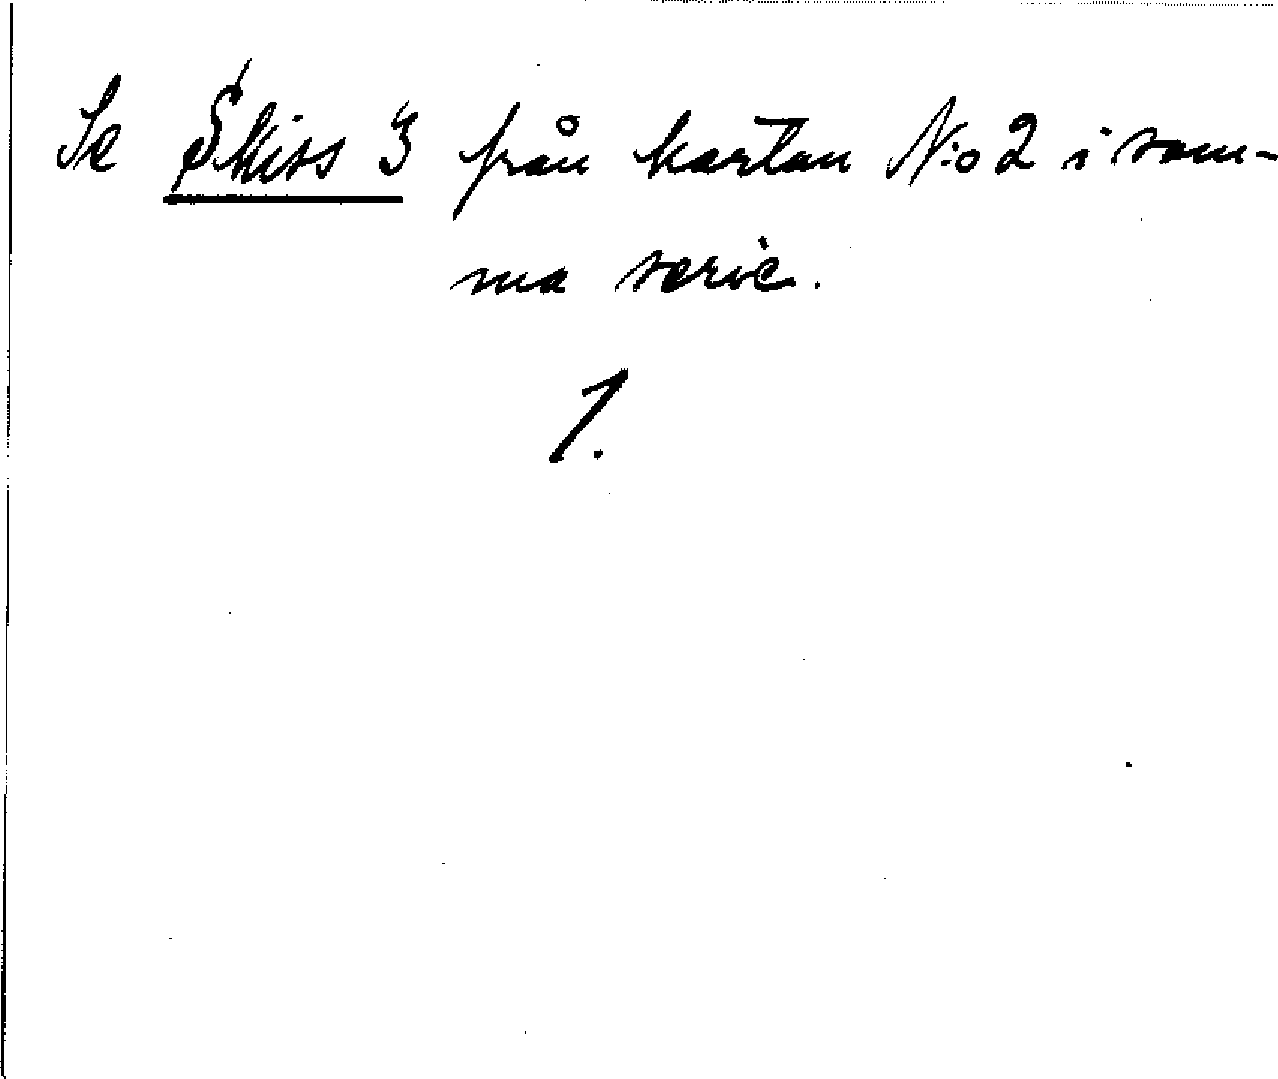 Se Skiss 3 från kartan N:o 2 i sam-
ma serie.
1.